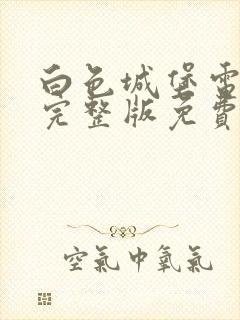 白色城堡雷
完整版免費
空氣中氧氣